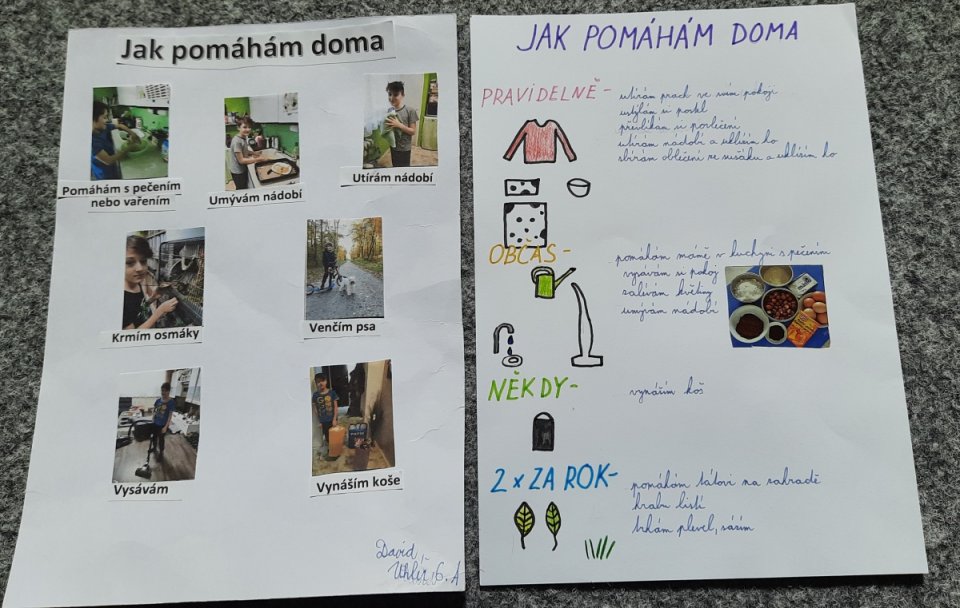 Jak pomáhám doma
Pomáhám s pečením
nebo vařením
Umývám nádobí
Utírám nádobí
Krmím osmáky
Venčím psa
Vysávám
Vynáším koše
David
Uhlíř, 6. A
JAK POMÁHÁM DOMA
PRAVIDELNĚ - utírám prach ve svém pokoji
ustýlám si postel
převlíkám si povlečení
utírám nádobí a uklízím ho
sbírám oblečení ze sušáku a uklízím ho
OBČAS - pomáhám mámě v kuchyni s pečením
vysávám si pokoj
zalévám květiny
umývám nádobí
NĚKDY - vynáším koš
2 x ZA ROK - pomáhám tátovi na zahradě
hrabu listí
trhám plevel, sázím